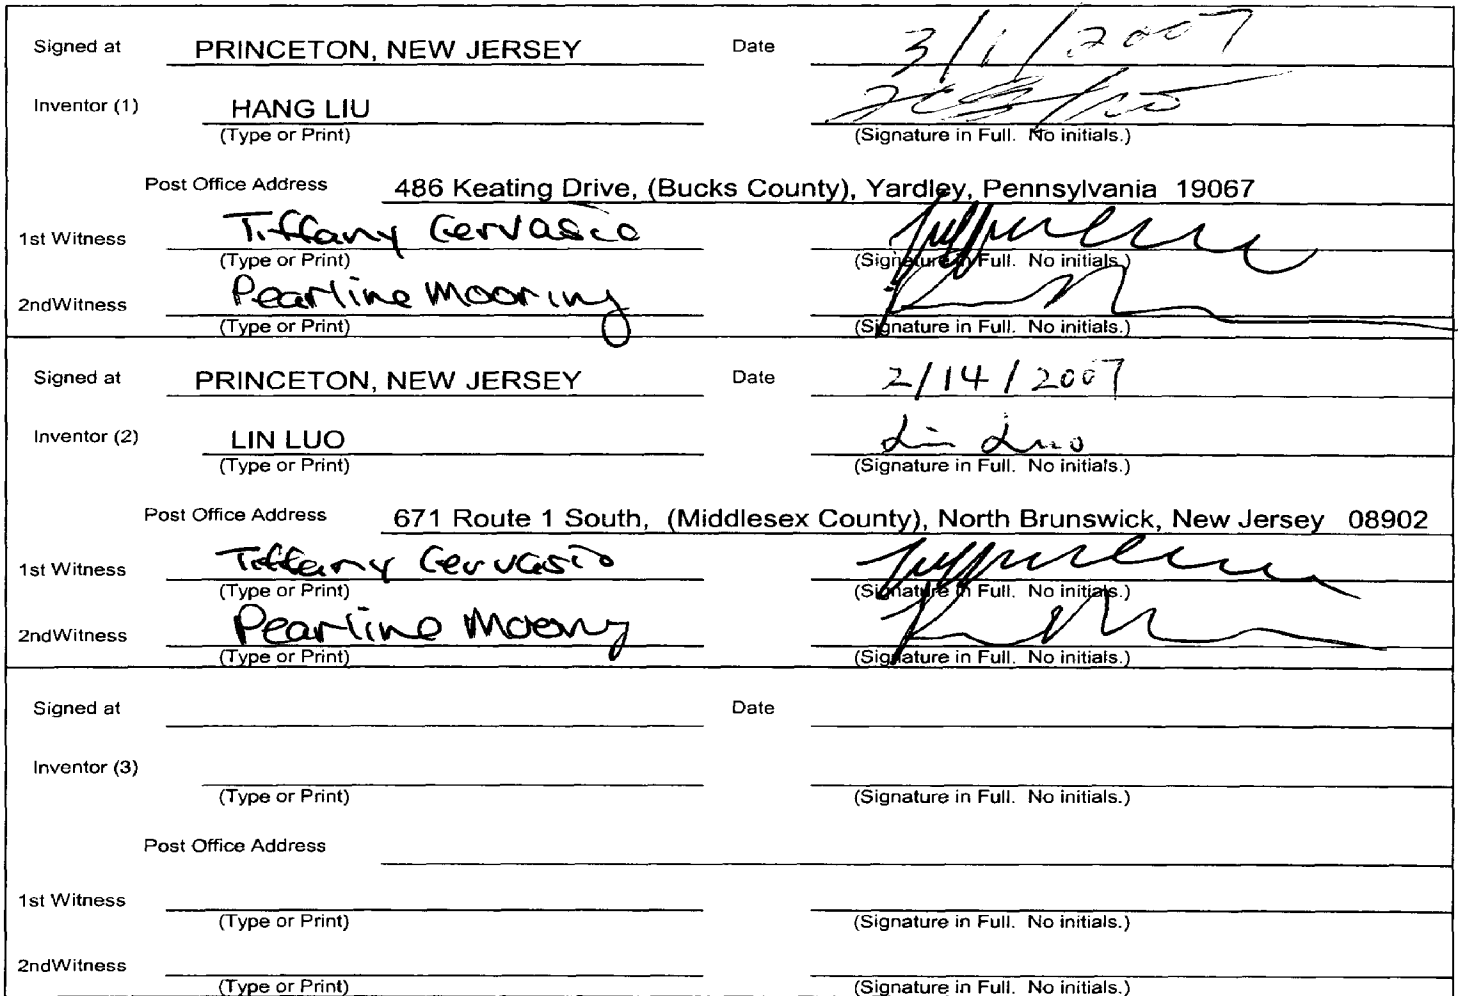 Signed at PRINCETON, NEW JERSEY Date 3/1/2007
Inventor (1) HANG LIU
(Type or Print) (Signature in Full. No initials.)
Post Office Address 486 Keating Drive, (Bucks County), Yardley, Pennsylvania 19067
1st Witness Tiffany Gervasio
(Type or Print) (Signature in Full. No initials.)
2ndWitness Pearline Mooring
(Type or Print) (Signature in Full. No initials.)
Signed at PRINCETON, NEW JERSEY Date 2/14/2007
Inventor (2) LIN LUO Lin Luo
(Type or Print) (Signature in Full. No initials.)
Post Office Address 671 Route 1 South, (Middlesex County), North Brunswick, New Jersey 08902
1st Witness Tiffany Gervasio
(Type or Print) (Signature in Full. No initials.)
2ndWitness Pearline Mooring
(Type or Print) (Signature in Full. No initials.)
Signed at Date
Inventor (3)
(Type or Print) (Signature in Full. No initials.)
Post Office Address
1st Witness
(Type or Print) (Signature in Full. No initials.)
2ndWitness
(Type or Print) (Signature in Full. No initials.)